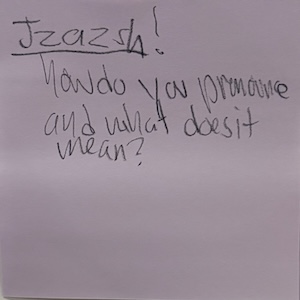 Jzazsh!
how do you pronounce
and what does it
mean?